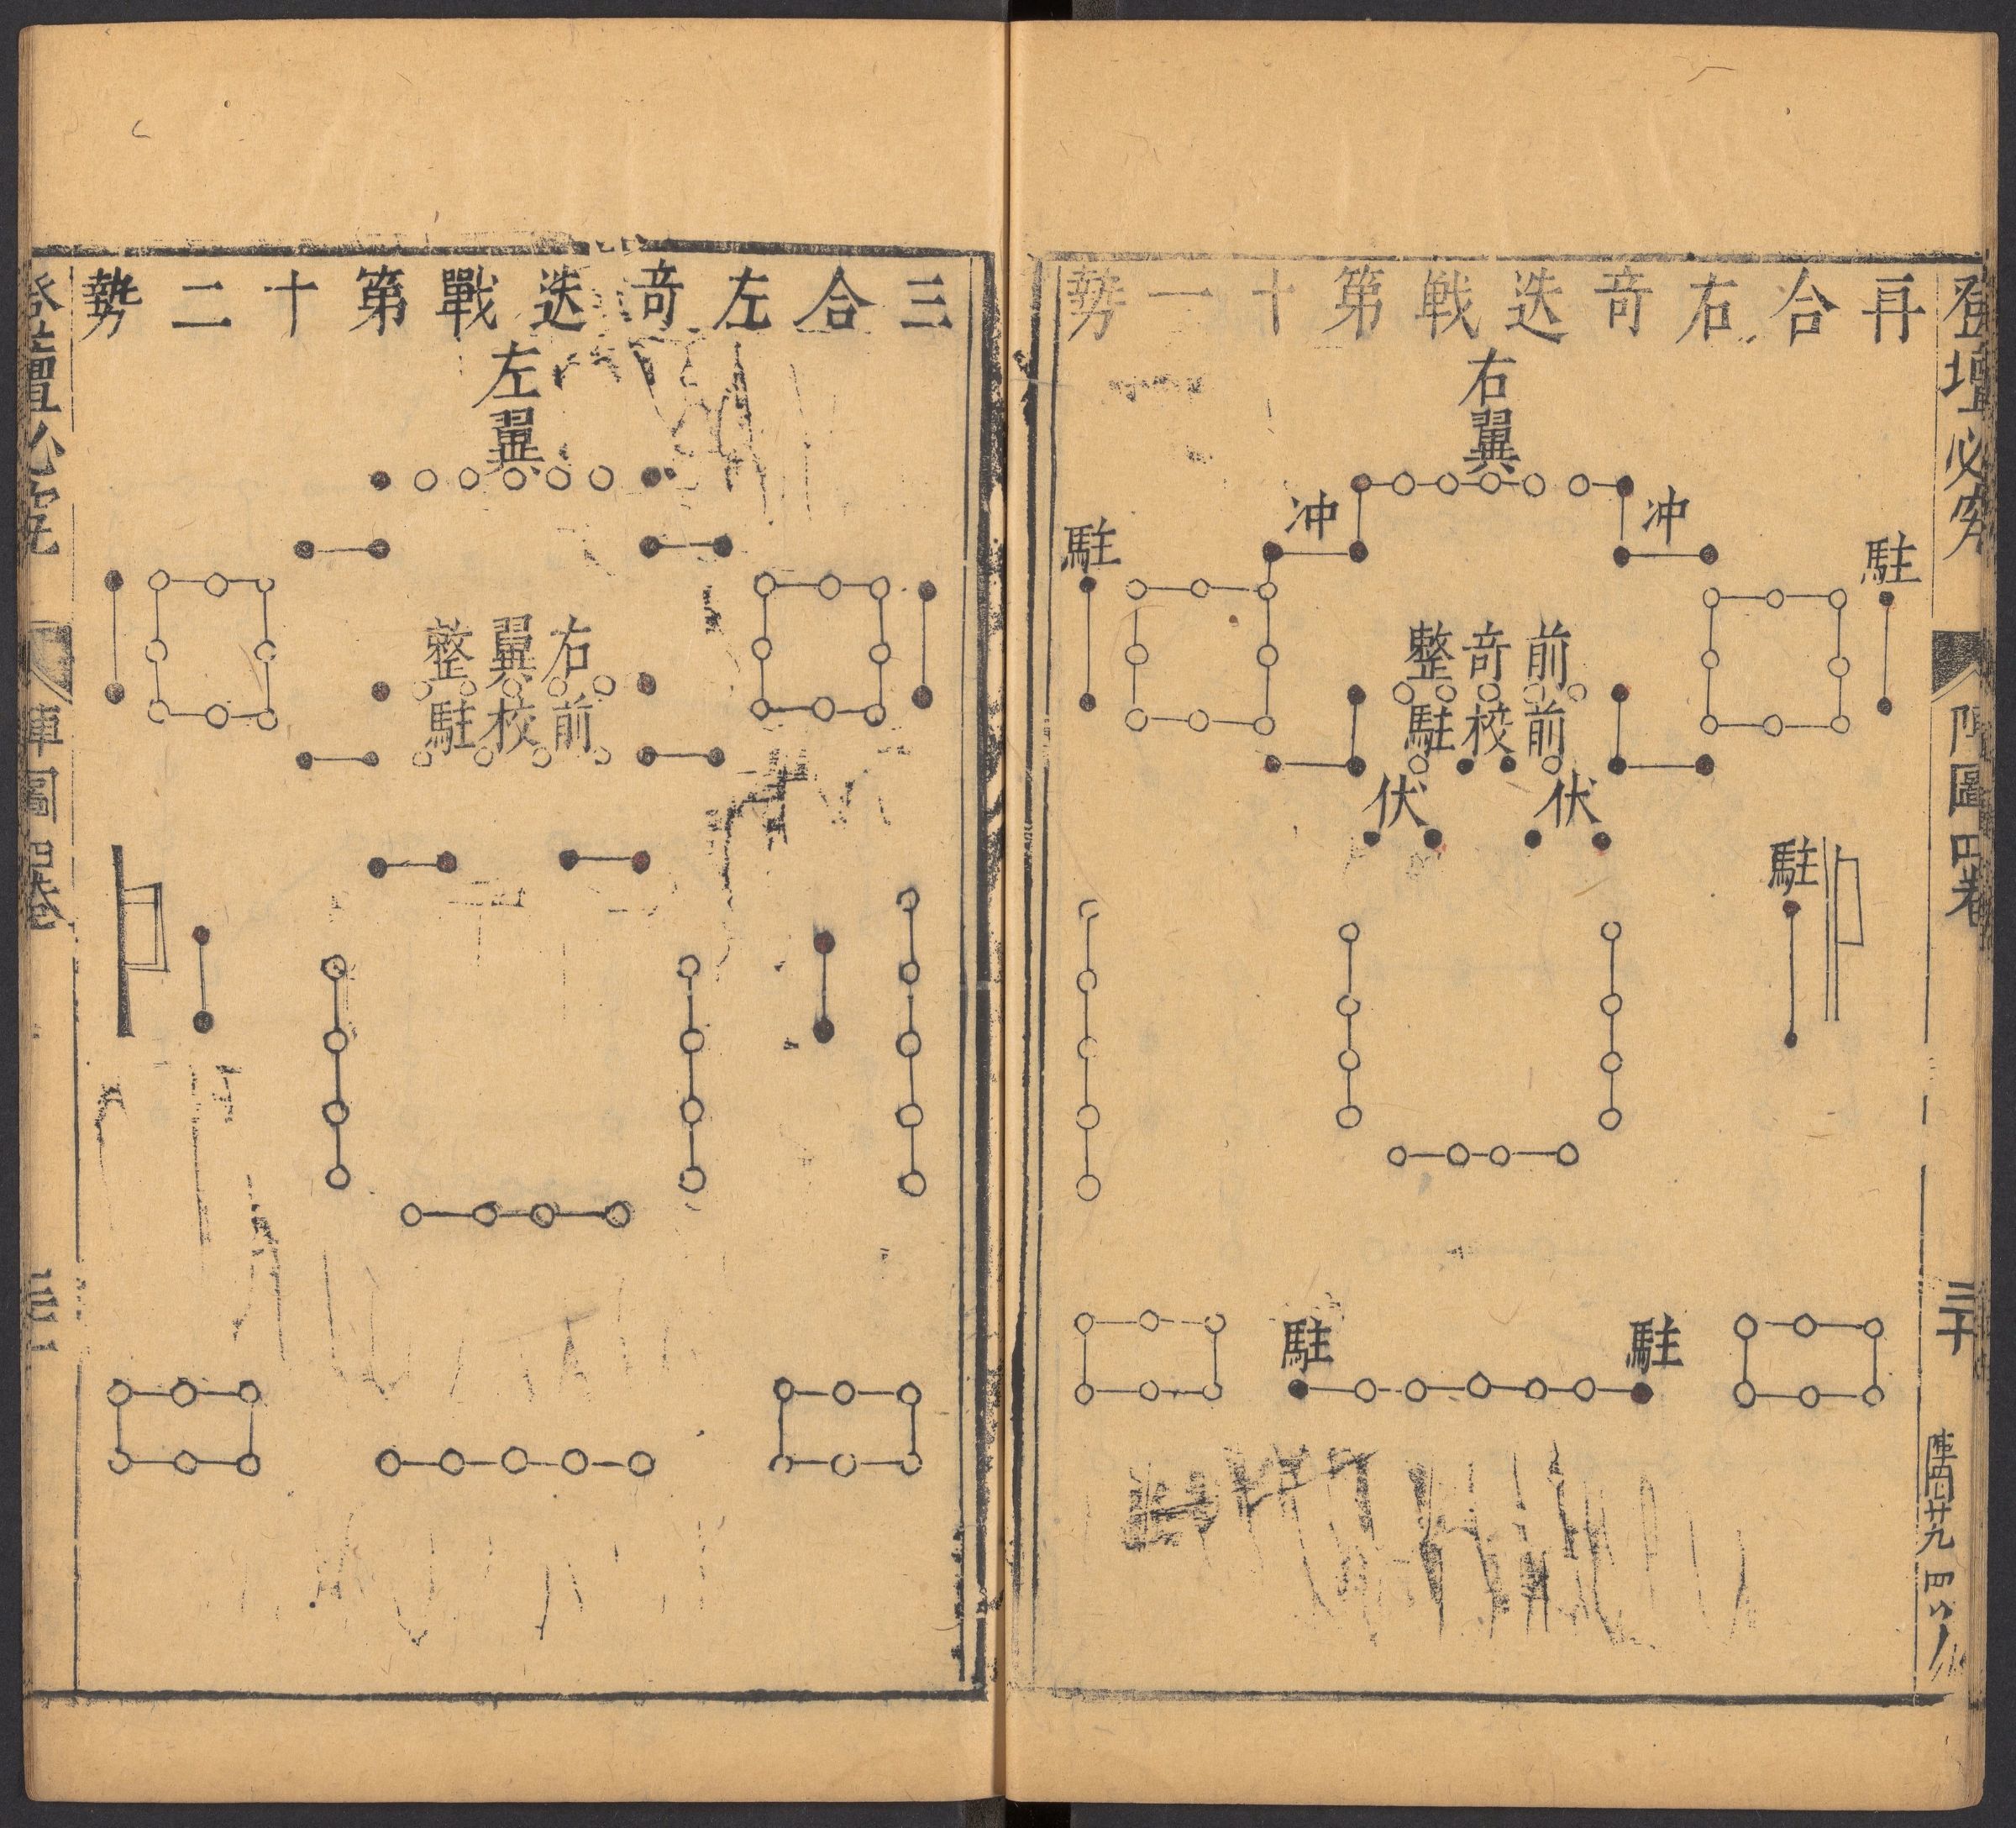 登壇必究
陣圖四卷
三十
再合右奇迭戰第十一勢
右翼
冲
冲
駐
駐
前奇整
前校駐
伏
伏
駐
駐
駐
三合左奇迭戰第十二勢
左翼
右翼整
前校駐
登壇必究
陣圖四卷